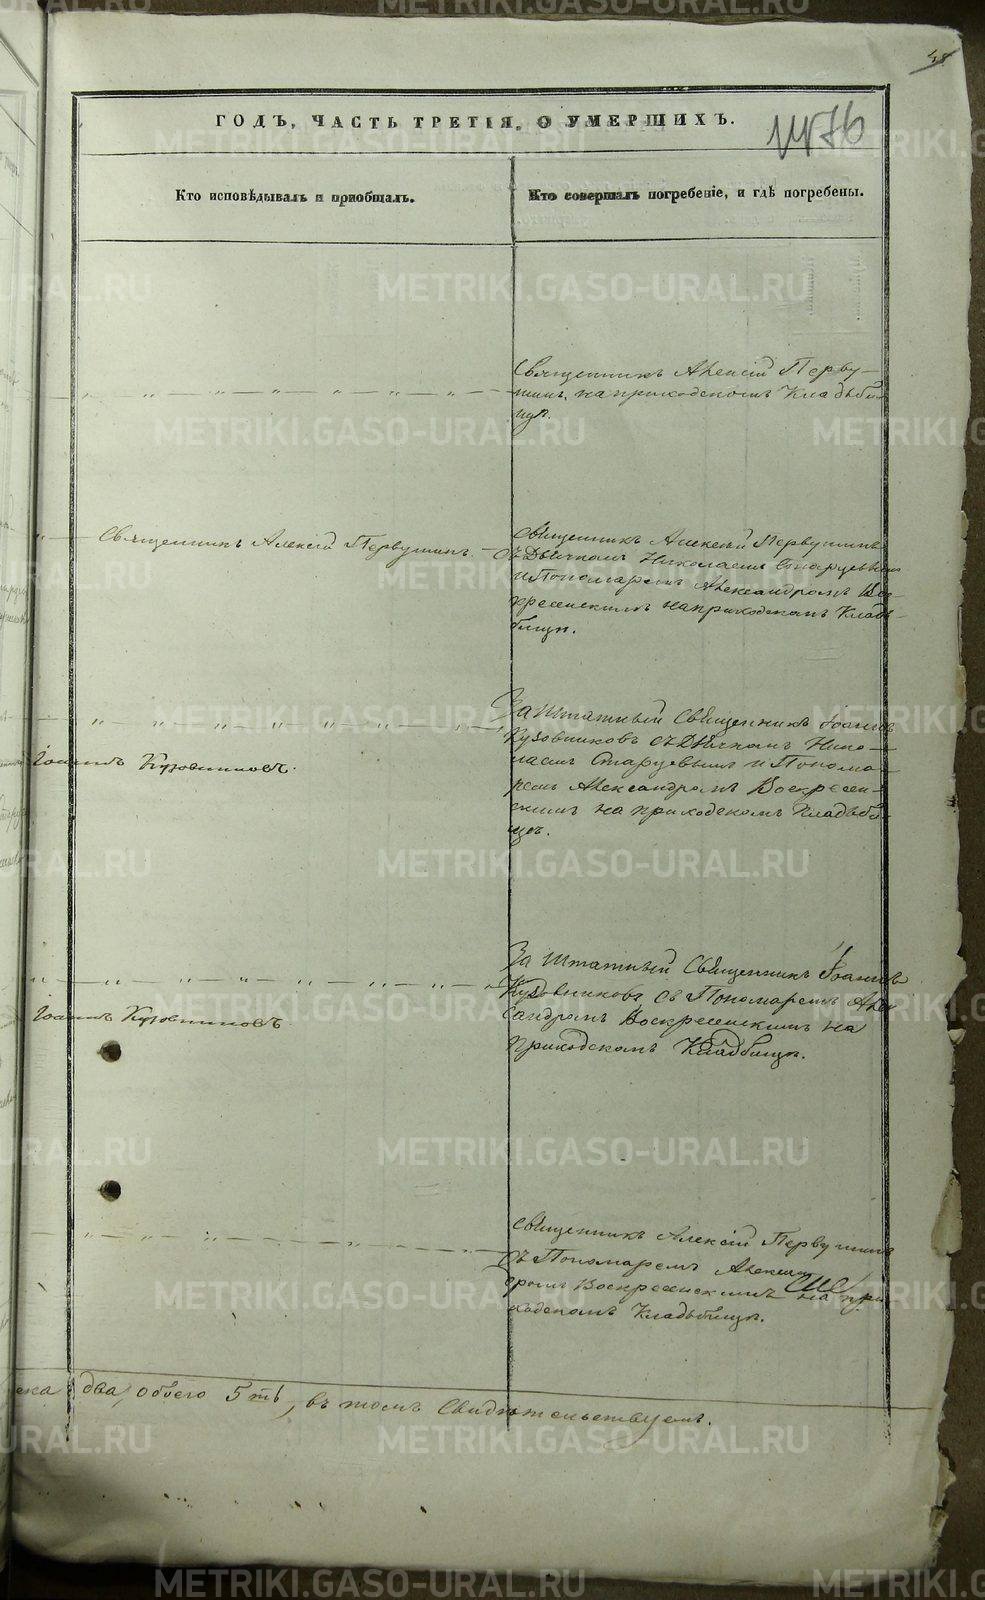 ГОДЪ, ЧАСТЬ ТРЕТІЯ, О УМЕРШИХЪ.
Кто исповѣдывалъ и пріобщалъ.
Кто совершалъ погребеніе, и гдѣ погребены.
Священникъ Алексій Перву-
шинъ, на приходскомъ Кладби-
щѣ.
Священникъ Алексій Первушинъ
Священникъ Алексій Первушинъ
съ Дьячкомъ Николаемъ Старцевымъ
и Пономаремъ Александромъ Вос-
кресенскимъ на приходскомъ Клад-
бищѣ.
Заштатный Священникъ Іоаннъ
Кузовниковъ съ Дьячкомъ Нико-
лаемъ Старцевымъ и Понома-
ремъ Александромъ Воскресен-
скимъ на приходскомъ Кладби-
щѣ.
Іоаннъ Кузовниковъ.
Заштатный Священникъ Іоаннъ
Кузовниковъ съ Пономаремъ Алек
сандромъ Воскресенскимъ на
приходскомъ Кладбищѣ.
Іоаннъ Кузовниковъ
Священникъ Алексій Первушинъ
съ Пономаремъ Алексан
дромъ Воскресенскимъ на при
ходскомъ Кладбищѣ.
два, обоего 5ть, въ томъ Свидѣтельствуемъ.
METRIKI.GASO-URAL.RU